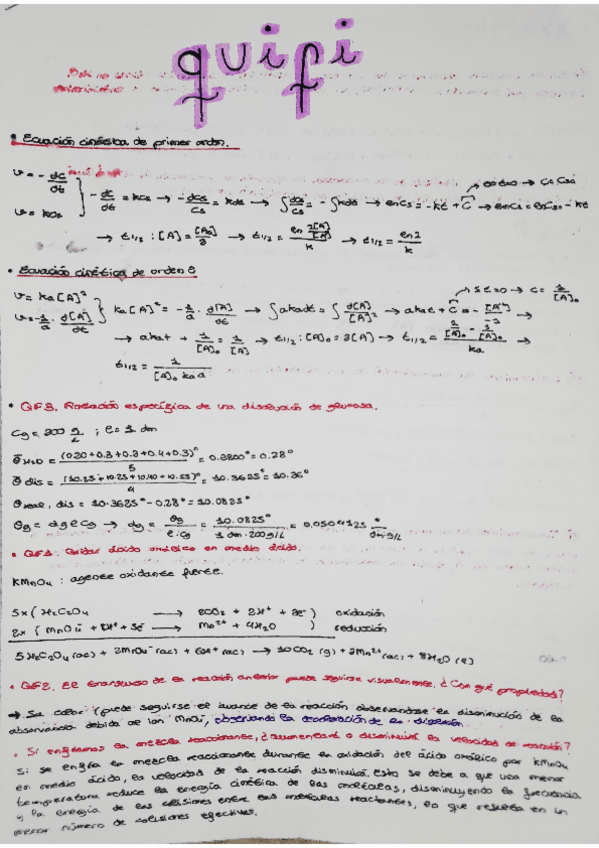 quifi
• Ecuación cinética de primer orden.
v = - dc/dt } - dc/dt = kcs → - dcs/cs = kdt → ∫ dcs/cs = - ∫ kdt → lncs = -kt + C → lncs = lncso - kt
si t=0 → C = Csó
v = kcs
→ t1/2 : [A] = [A0]/2 → t1/2 = → t1/2 = ln2/k
• Ecuación cinética de orden 2
v = ka[A]²
v = - 1/a · d[A]/dt } ka[A]² = - 1/a · d[A]/dt → ∫ akadt = ∫ d[A]/[A]² → akat + C = - [A⁻¹]/-1 →
si t=0 → C = 1/[A]₀
→ akat + 1/[A]₀ = 1/[A] → t1/2 : [A]₀ = 2[A] → t1/2 = →
t1/2 = 1/[A]₀ ka a
• QF3. Rotación específica de una disolución de glucosa.
Cg = 200 g/L ; l = 1 dm
θ̄ H2O = (0.20+0.3+0.2+0.4+0.3)°/5 = 0.2800° = 0.28°
θ̄ dis = (10.25+10.25+10.40+10.55)°/4 = 10.3625° = 10.36°
θ real, dis = 10.3625° - 0.28° = 10.0825°
θg = αg l cg → αg = θg/l·cg = 10.0825°/1 dm · 200 g/L = 0.0504125 °/dm·g/L
• QF1. Oxidar ácido oxálico en medio ácido.
KMnO4 : agente oxidante fuerte.
5x ( H2C2O4 → 2CO2 + 2H⁺ + 2e⁻ ) oxidación
2x ( MnO4⁻ + 8H⁺ + 5e⁻ → Mn²⁺ + 4H2O ) reducción
5H2C2O4 (ac) + 2MnO4⁻ (ac) + 6H⁺ (ac) → 10CO2 (g) + 2Mn²⁺ (ac) + 8H2O (l)
• QF2. El transcurso de la reacción anterior puede seguirse visualmente. ¿Con qué propiedad?
→ Su color (puede seguirse el avance de la reacción observandose la disminución de la
absorvancia debida al ion MnO4⁻, observando la decoloración de la disolución.
• Si enfriamos la mezcla reaccionante, ¿aumentará o disminuirá la velocidad de reacción?
Si se enfría la mezcla reaccionante durante la oxidación del ácido oxálico por KMnO4
en medio ácido, la velocidad de la reacción disminuirá. Esto se debe a que una menor
temperatura reduce la energía cinética de las moléculas, disminuyendo la frecuencia
y la energía de las colisiones entre las moléculas reactantes, lo que resulta en un
menor número de colisiones efectivas.